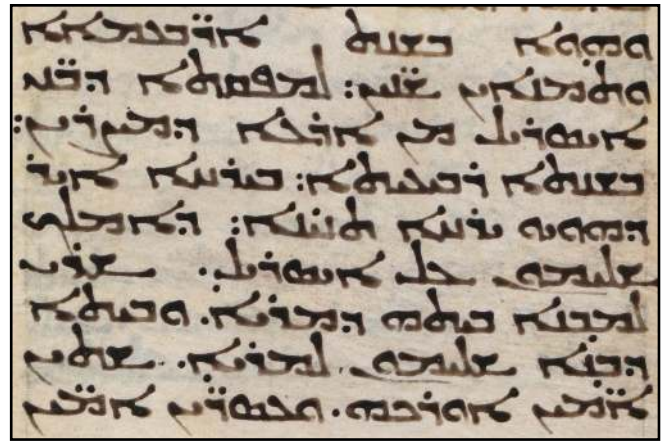 ܘܗܘܐ ܒܫܢܬ ܐܪ̈ܒܥܡܐܐ
ܘܬܡܢܐܝܢ ܫܢܝ̈ܢ: ܠܡܦܩܬܐ ܕܒ̈ܢܝ
ܐܝܣܪܝܠ ܡܢ ܐܪܥܐ ܕܡܨܪܝܢ:
ܒܫܢܬܐ ܪܒܝܥܬܐ: ܒܝܪܚܐ ܐܝܪ
ܕܗܘܝܘ ܝܪܚܐ ܬܢܝܢܐ: ܕܐܡܠܟ
ܫܠܝܡܘܢ ܥܠ ܐܝܣܪܝܠ. ܫܪܝ
ܠܡܒܢܐ ܒܝܬܗ ܕܡܪܝܐ. ܘܒܝܬܐ
ܕܒܢܐ ܫܠܝܡܘܢ ܠܡܪܝܐ. ܫܬܝܢ
ܐܡ̈ܝܢ ܐܘܪܟܗ. ܘܥܣܪ̈ܝܢ ܐܡ̈ܝܢ